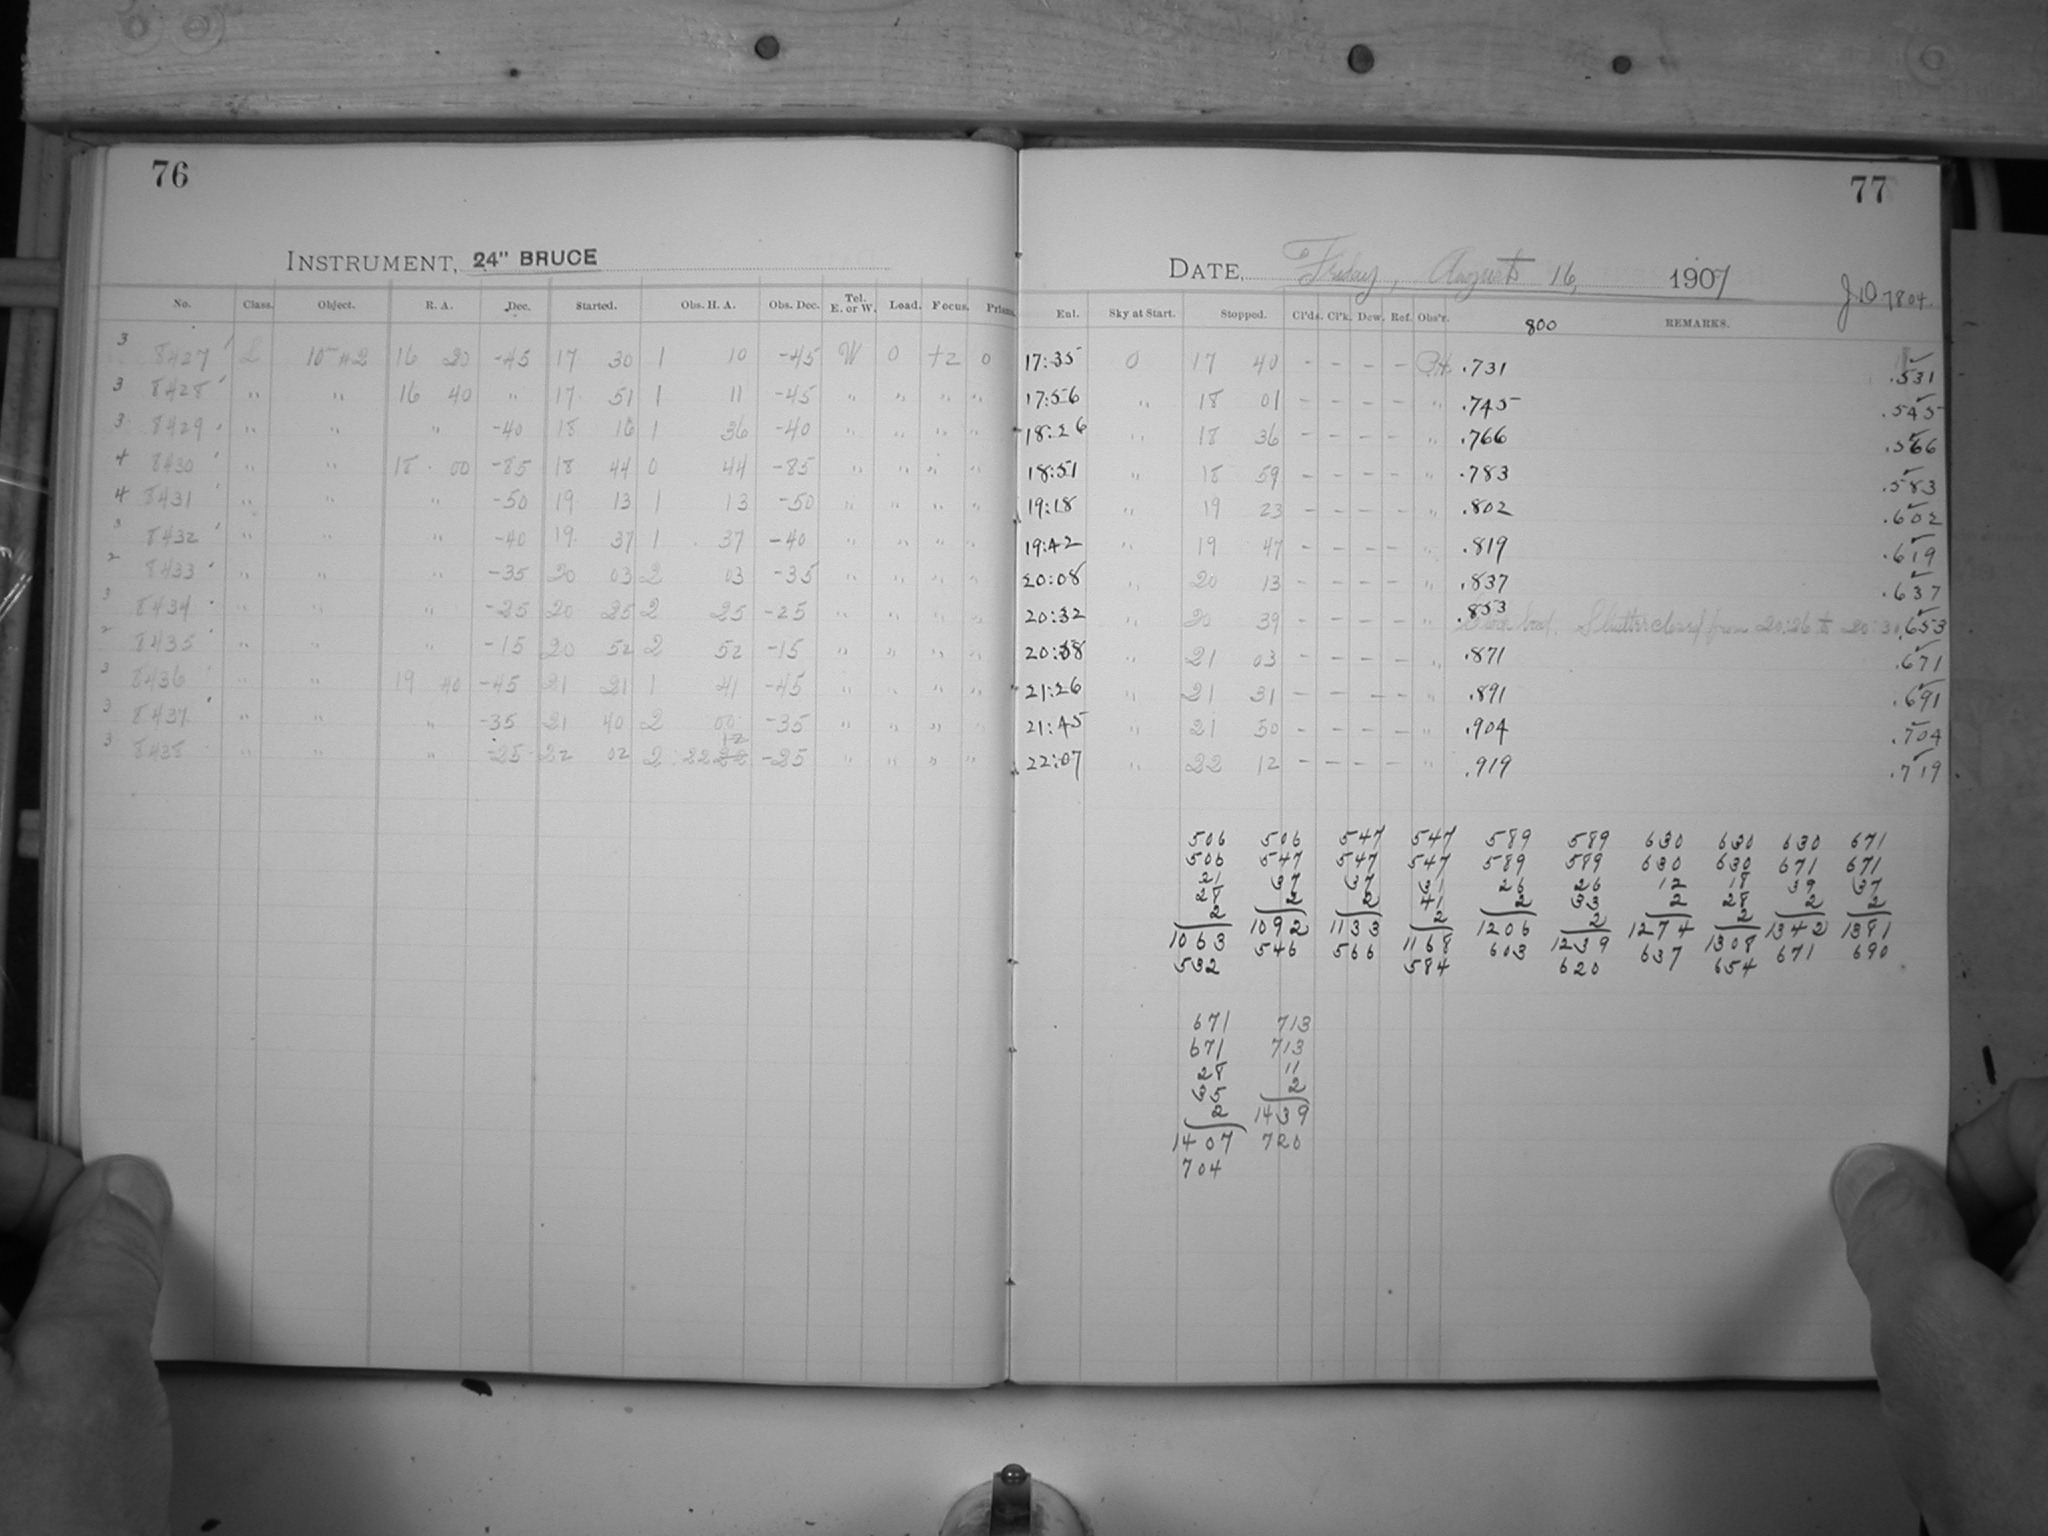 76
INSTRUMENT, 24" BRUCE
No. Class. Object. R. A. Dec. Started. Obs. H. A. Obs. Dec. Tel. E. or W. Load. Focus. Prisms.
3 8427 L 10m #2 16 20 -45 17 30 1 10 -45 W 0 +2 0
3 8428 " " 16 40 " 17 51 1 11 -45 " " " "
3 8429 " " " -40 18 16 1 36 -40 " " " "
4 8430 " " 18 00 -85 18 44 0 44 -85 " " " "
4 8431 " " " -50 19 13 1 13 -50 " " " "
3 8432 " " " -40 19 37 1 37 -40 " " " "
2 8433 " " " -35 20 03 2 03 -35 " " " "
3 8434 " " " -25 20 25 2 25 -25 " " " "
2 8435 " " " -15 20 52 2 52 -15 " " " "
3 8436 " " 19 40 -45 21 21 1 41 -45 " " " "
3 8437 " " " -35 21 40 2 00 -35 " " " "
3 8438 " " " -25 22 02 2 22 -25 " " " "
77
DATE, Friday, August 16, 1907
JD 7804.
Enl. Sky at Start. Stopped. Cl'ds. Cl'k. Dew. Ref. Obs'r. 800 REMARKS.
17:35 0 17 40 - - - - .731 .531
17:56 " 18 01 - - - - " .745 .545
18:26 " 18 36 - - - - " .766 .566
18:51 " 18 59 - - - - " .783 .583
19:18 " 19 23 - - - - " .802 .602
19:42 " 19 47 - - - - " .819 .619
20:08 " 20 13 - - - - " .837 .637
20:32 " 20 39 - - - - " .853 Shutter closed from 20:26 to 20:30 .653
20:58 " 21 03 - - - - " .871 .671
21:26 " 21 31 - - - - " .891 .691
21:45 " 21 50 - - - - " .904 .704
22:07 " 22 12 - - - - " .919 .719
506 506 547 547 589 589 630 630 630 671
506 547 547 547 589 589 630 630 671 671
21 37 37 31 26 26 12 18 39 37
28 2 2 41 2 33 2 28 2 2
2 1092 1133 2 1206 2 1274 2 1342 1381
1063 546 566 1168 603 1239 637 1308 671 690
532 584 620 654
671 713
671 713
28 11
35 2
2 1439
1407 720
704